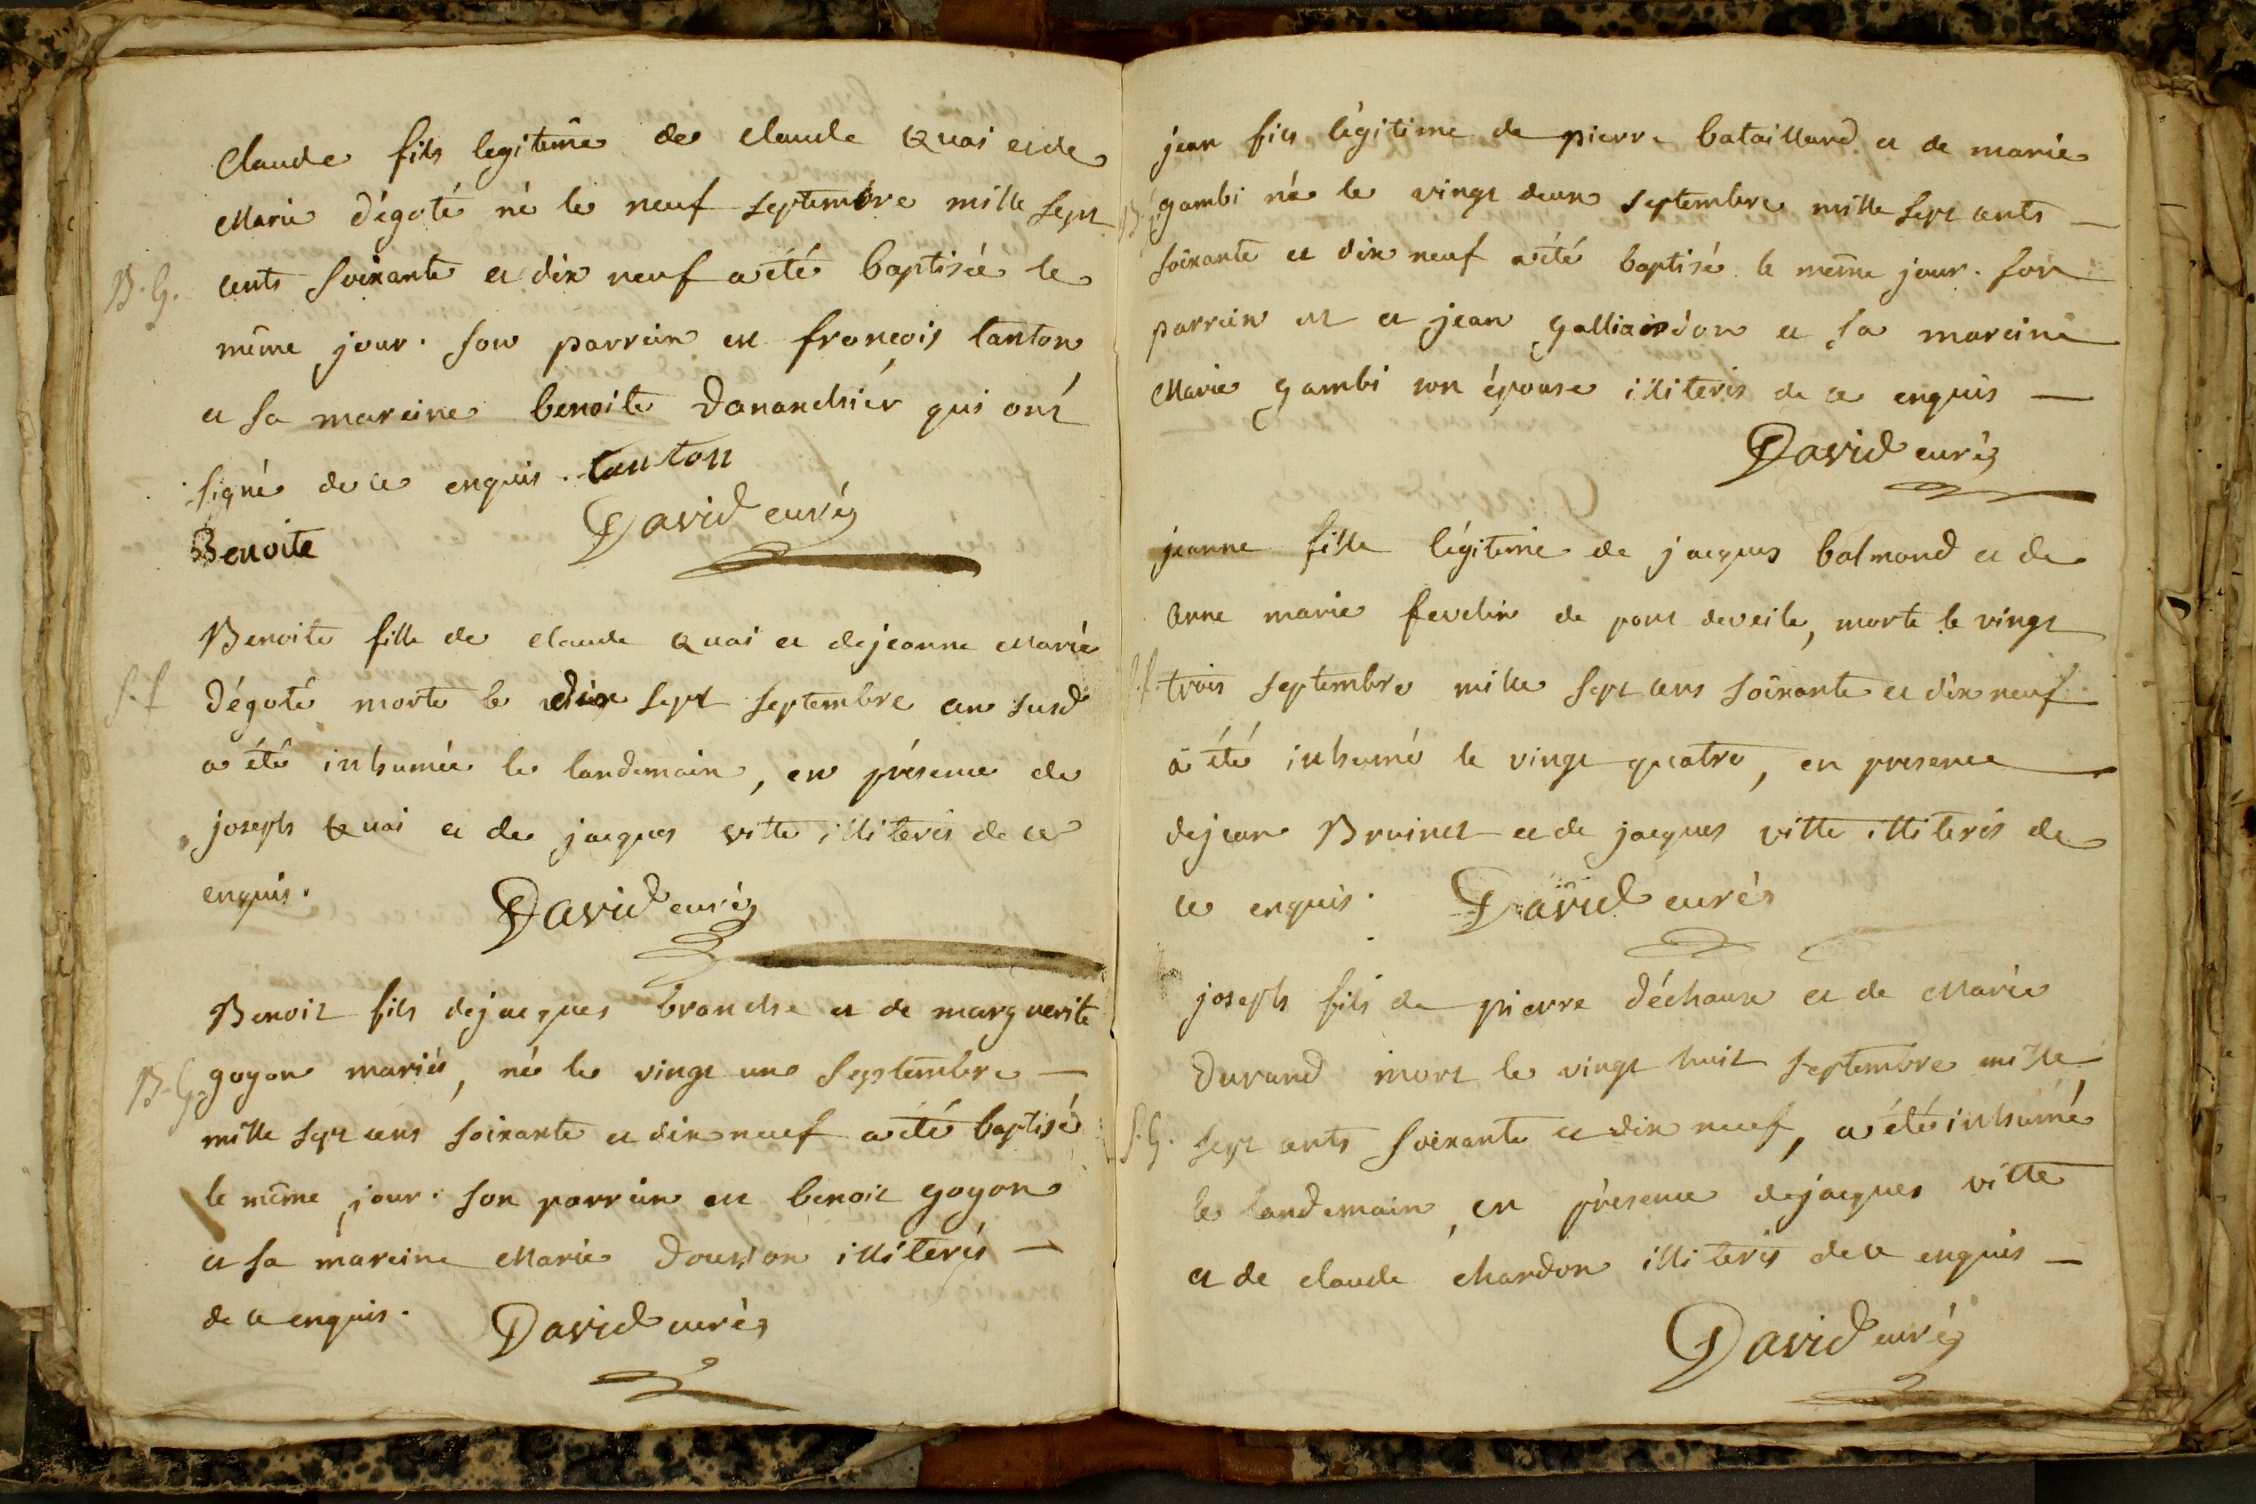 Claude fils legitime de claude Quai et de
Marie dégoté né le neuf septembre mille sept
B. G.
cents soixante et dix neuf a été baptisée le
même jour. son parrein est françois tanton
et sa mareine benoite Danandhier qui ont
signé de ce enquis. tanton
Benoite
David curé
Benoite fille de claude Quai et de jeanne Marie
S. f
dégoté morte le dix sept septembre an susd
a été inhumée le landemain, en présence de
joseph Quai et de jacques vitte illiterés de ce
enquis.
David curé
Benoit fils de jacques branche et de marguerite
B. G.
goyon mariés, né le vingt une septembre —
mille sept cens soixante et dix neuf a été baptisé
le même jour. son parrein est benoit goyon
et sa mareine Marie Doucion illiterés —
de ce enquis.
David curé
jean fils légitime de pierre bataillard et de marie
B. G.
gambi né le vingt deux septembre mille sept cents —
soixante et dix neuf a été baptisé le même jour. son
parrein est et jean galliardon et sa mareine
Marie gambi son épouse illiterés de ce enquis —
David curé
jeanne fille légitime de jacques balmond et de
anne marie fevelin de pont deveile, morte le vingt
S. f.
trois septembre mille sept cens soixante et dix neuf
a été inhumé le vingt quatre, en presence
de jean Bruinet et de jacques vitte illiterés de
ce enquis.
David curé
joseph fils de pierre déchaux et de Marie
Durand mort le vingt huit septembre mille
S. G.
sept cents soixante et dix neuf, a été inhumé
le landemain, en présence de jacques vitte
et de claude chardon illiterés de ce enquis —
David curé